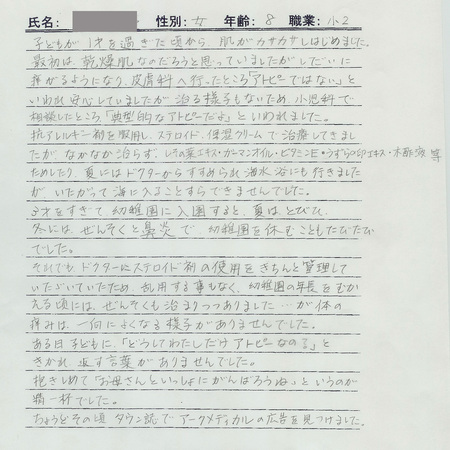 氏名: 性別: 女 年齢: 8 職業: 小2
子どもが1才を過ぎた頃から、肌がカサカサしはじめました。
最初は、乾燥肌なのだろうと思っていましたがしだいに
痒がるようになり、皮膚科へ行ったところ「アトピーではない」と
いわれ安心していましたが治る様子もないため、小児科で
相談したところ「典型的なアトピーだよ」といわれました。
抗アレルギー剤を服用し、ステロイド、保湿クリームで治療してきまし
たがなかなか治らず、しその葉エキス・ガーマンオイル・ビタミンE・うずらの卵エキス・木酢液 等
ためしたり、夏にはドクターからすすめられ海水浴にも行きました
が、いたがって海に入ることすらできませんでした。
3才をすぎて、幼稚園に入園すると、夏は、とびひ、
冬には、ぜんそくと鼻炎で、幼稚園を休むこともたびたび
でした。
それでもドクターにステロイド剤の使用をきちんと管理して
いただいていたため、乱用する事もなく、幼稚園の年長をむか
える頃には、ぜんそくも治まりつつありました…が体の
痒みは、一向によくなる様子がありませんでした。
ある日子どもに、「どうしてわたしだけアトピーなの?」と
きかれ、返す言葉がありませんでした。
抱きしめて「お母さんといっしょにがんばろうね」というのが
精一杯でした。
ちょうどその頃、タウン誌でアークメディカルの広告を見つけました。